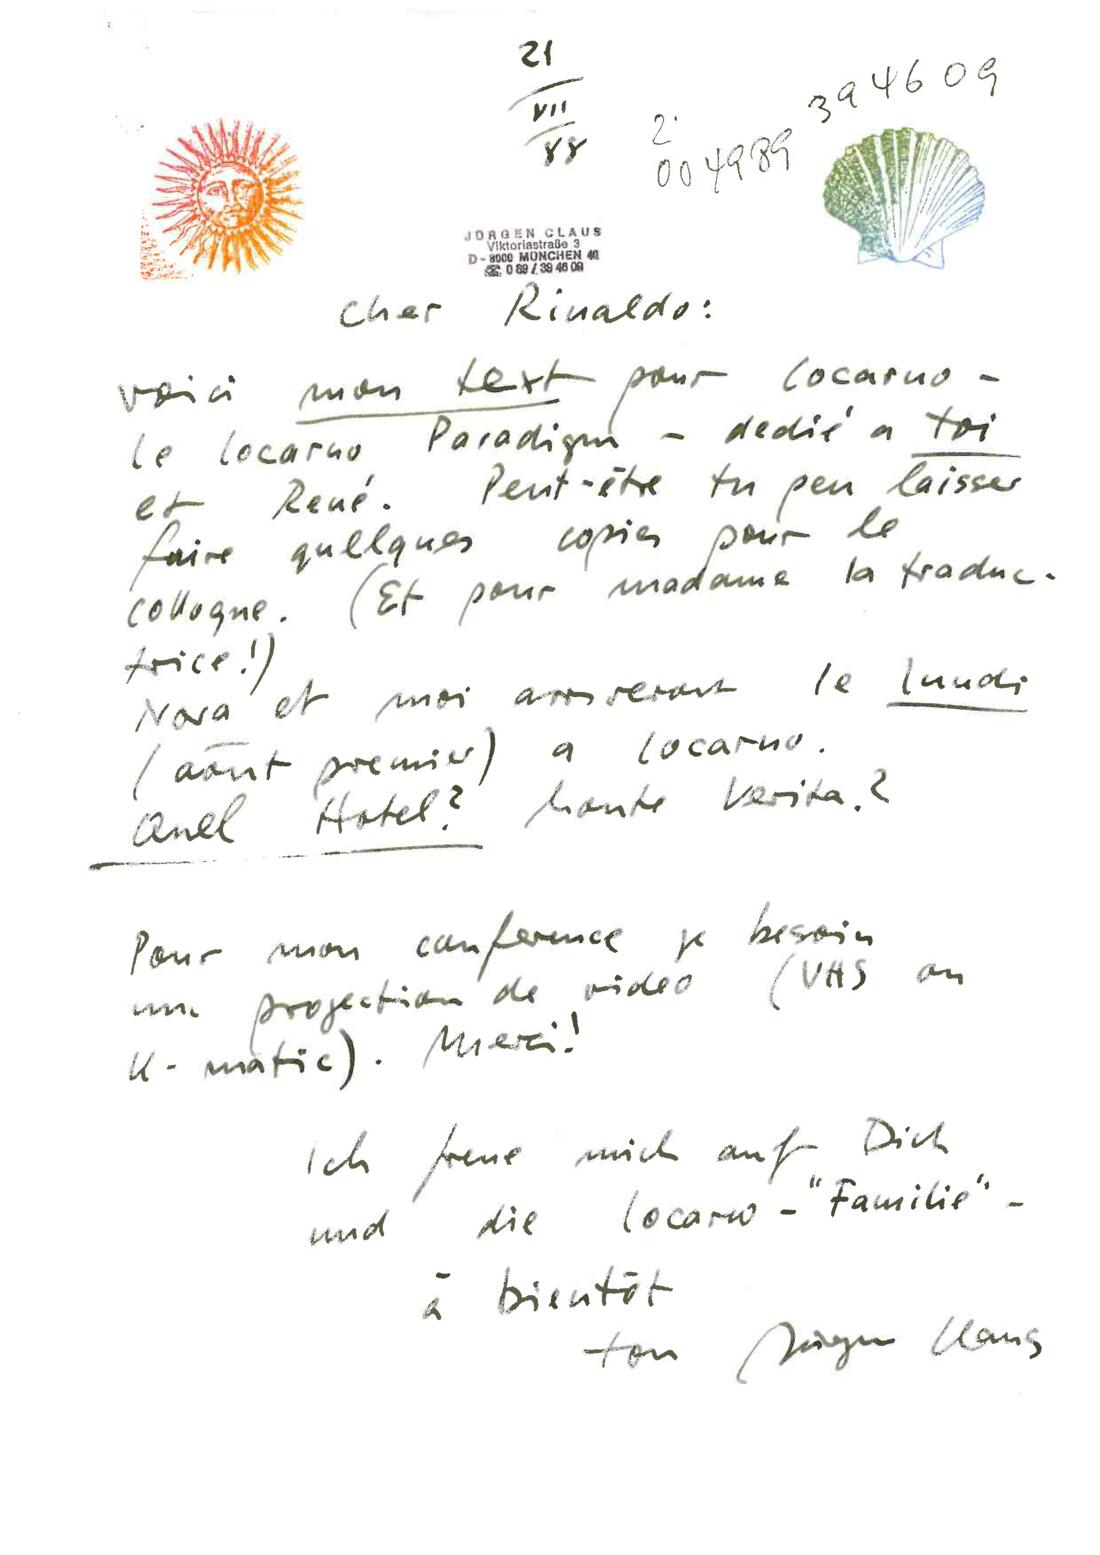 21
VII
88
394609
2.
004989
JÜRGEN CLAUS
Viktoriastraße 3
D - 8000 MÜNCHEN 40
☎ 0 89 / 39 46 09
Cher Rinaldo:
voici mon text pour Locarno -
le Locarno Paradigm - dedié a toi
et René. Peut-être tu peu laisser
faire quellques copies pour le
colloque. (Et pour madame la traduc-
trice!)
Nora et moi arriverant le lundi
(aôut premier) a Locarno.
Quel Hotel? Monte Verita?
Pour mon conference je besoin
une projection de video (VHS ou
U-matic). Merci!
Ich freue mich auf Dich
und die Locarno-"Familie" -
à bientôt
ton Jürgen Claus